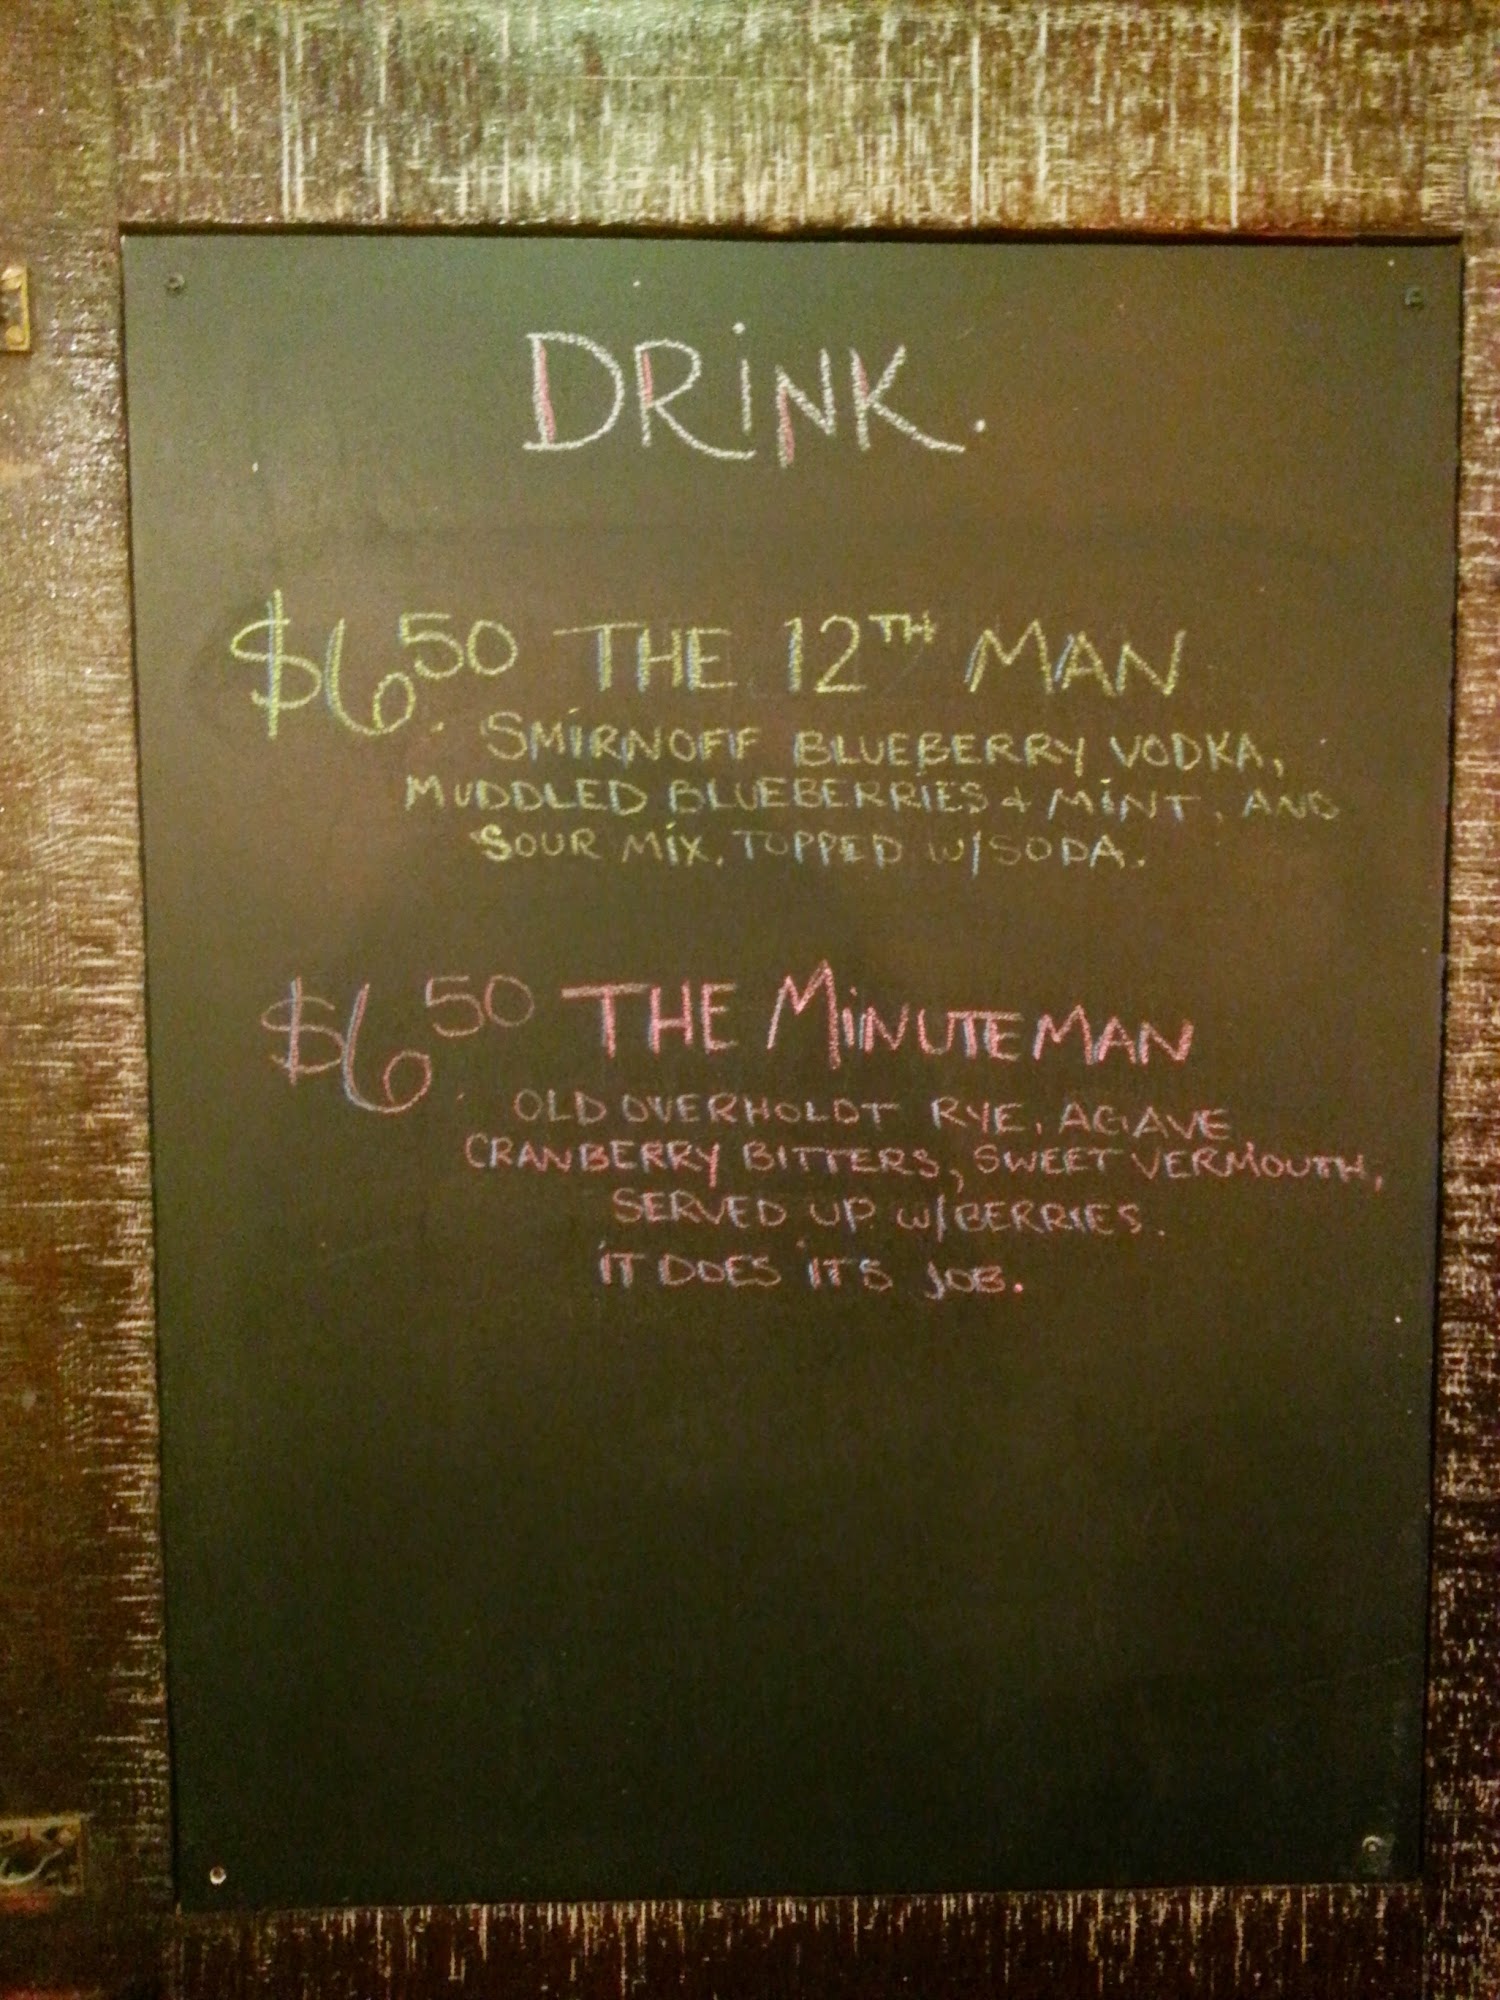 DRiNK.
$6.50 THE 12TH MAN
SMiRNOFF BLUEBERRY VODKA,
MUDDLED BLUEBERRIES & MiNT, AND
SOUR MiX, TOPPED W/SODA.
$6.50 THE MiNUTEMAN
OLD OVERHOLDT RYE, AGAVE
CRANBERRY BITTERS, SWEET VERMOUTH,
SERVED UP W/BERRIES.
iT DOES iTS JOB.